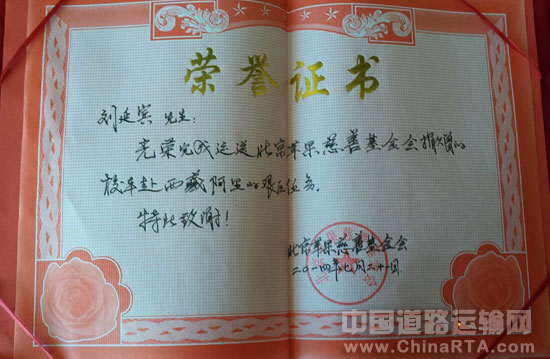 荣誉证书
刘延宾 先生：
光荣完成运送北京苹果慈善基金会捐资的
校车赴西藏阿里的艰巨任务。
特此致谢！
北京苹果慈善基金会
二〇一四年七月二十一日
中国道路运输网
www.ChinaRTA.com